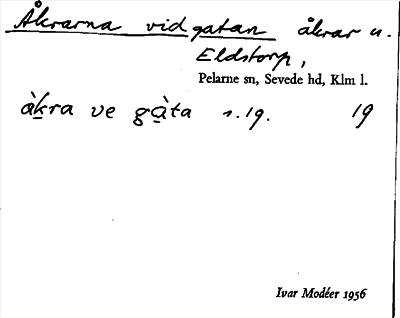 Åkrarna vid gatan åkrar u.
Eldstorp,
Pelarne sn, Sevede hd, Klm l.
åkra ve gàta s. 19. 19
Ivar Modéer 1956